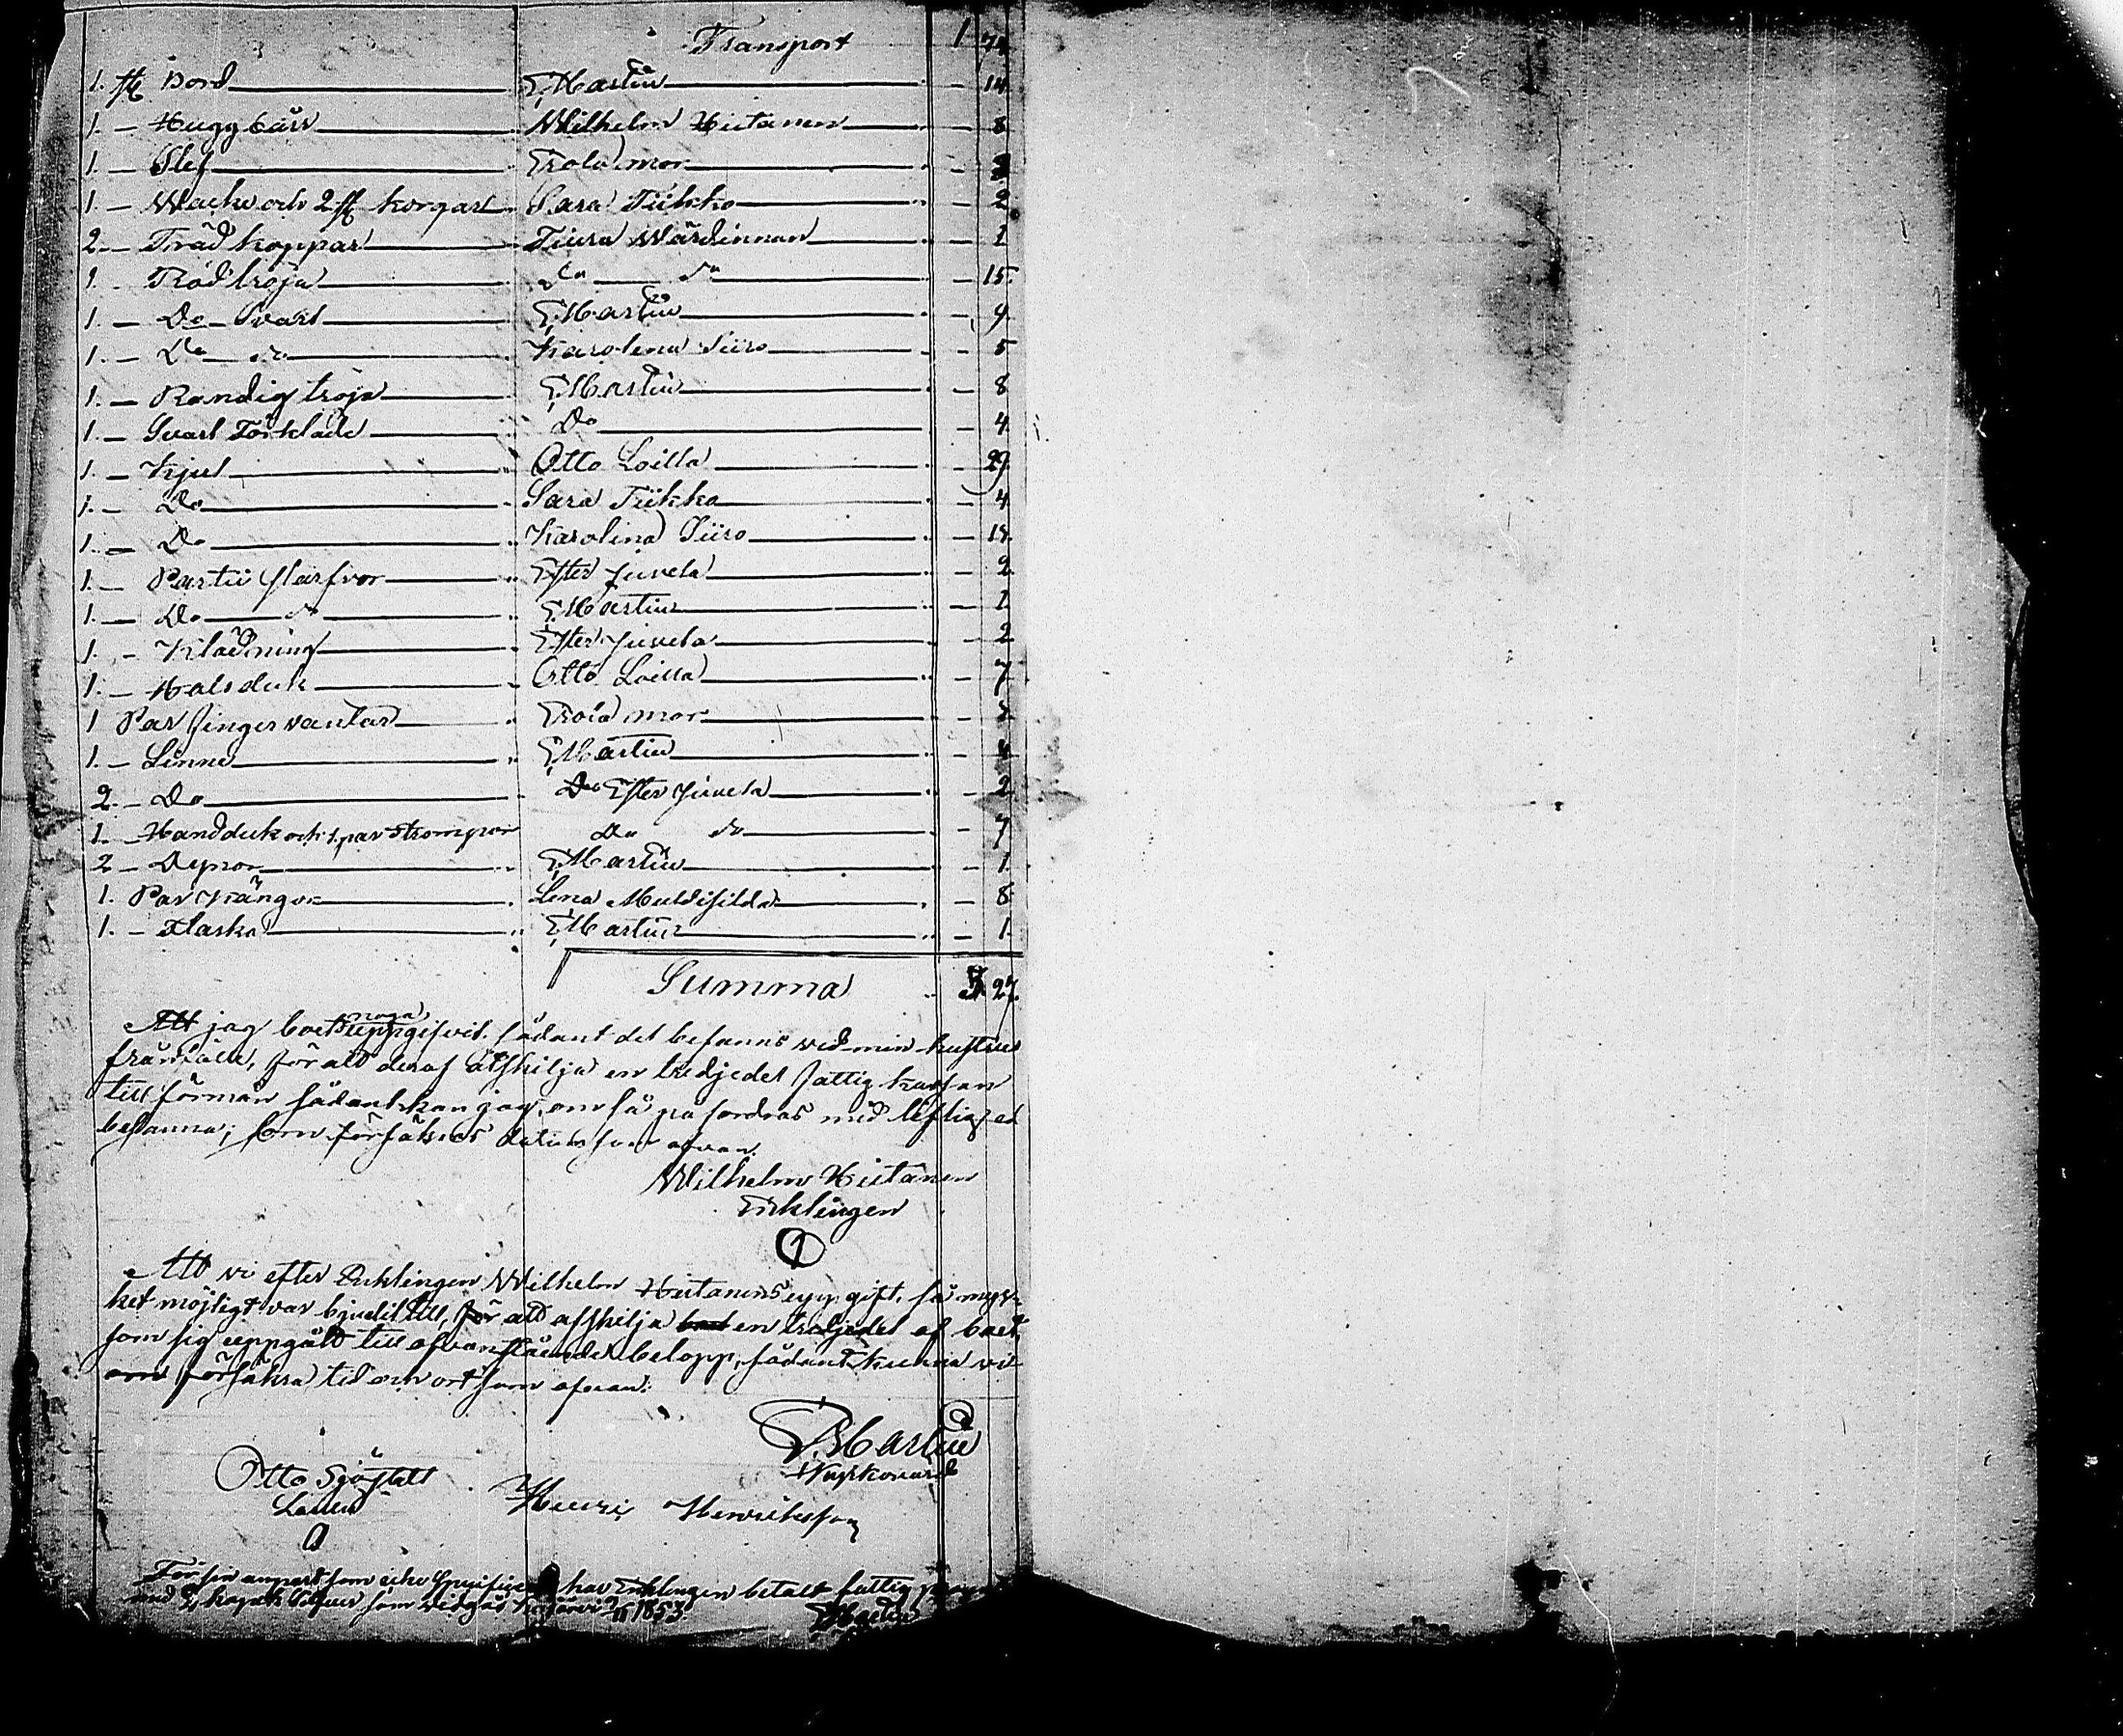 Transport 1 74
1. st Bord E Martin - 14
1. - Hugg båss Wilhelm Hietanen - 8
1. - Slef Erola mor - 3
1. - Wacka och 2 st korgar Sara Tiikko - 2
2. - Träd koppar Tiura Wärdinnan - 1
1. - Röd tröja Do do - 15
1. - Do Svart E Martin - 9
1. - Do do Karolina Siiro - 5
1. - Randig tröja E Martin - 8
1. - Svart Förkläde Do - 4
1. - Kjol Otto Loilla - 29
1. - Do Sara Tiikko - 4
1. - Do Karolina Siiro - 18
1. - Partie slarfvor Ester Juvela - 2
1. - Do do E Martin - 1
1. - Klädning Ester Juvela - 2
1. - Halsduk Otto Loilla - 7
1 Par finger vantar Erola mor -
1. - Linne E Martin - 4
2. - Do Do Ester Juvela - 2
1. - Handduk och 1 par Strompor Do do - 7
2 - Dynor E Martin - 1
1. Par Kängor Lena Muldisilda - 8
1. - Flaska E Martin - 1
Summa 3 27
Att jag boet noga uppgifvit sådant det befanns wid min hustrus
frånfälle, för att deraf åtskilja en tredjedel fattig kassan
till förmån sådant kan jag, om så på fordras med liflig ed
besanna; som försäkras datum som ofvan.
Wilhelm Hietanen
Enklingen
Att vi efter Enklingen Wilhelm Hietanens uppgift, så myc-
ket möjligt var bjudit till, för att afskilja en tredjedel af boet,
som sig uppgått till ofvanstående belopp, sådant kunna vi
försäkra tid och ort som ofvan:
E Martin
Otto Sjöstedt
Henric Henriksson
har Enklingen betalt fattig
1853
E Martin